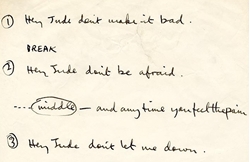 ① Hey Jude don't make it bad.
BREAK
② Hey Jude don't be afraid.
.... middle — and any time you feel the pain
③ Hey Jude don't let me down.